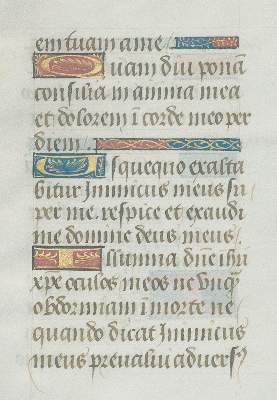 em tuam a me
Quam diu ponā
consilia in anima mea
et dolorem ī corde meo per
diem
Usquequo exalta
bitur Inimicus meus su
per me. respice et exaudi
me domine deus meus
Illumina dn̄e ihū
xp̄e oculos meos ne vnq̄
obdormiam ī morte ne
quando dicat Inimicus
meus preualui aduersꝰ